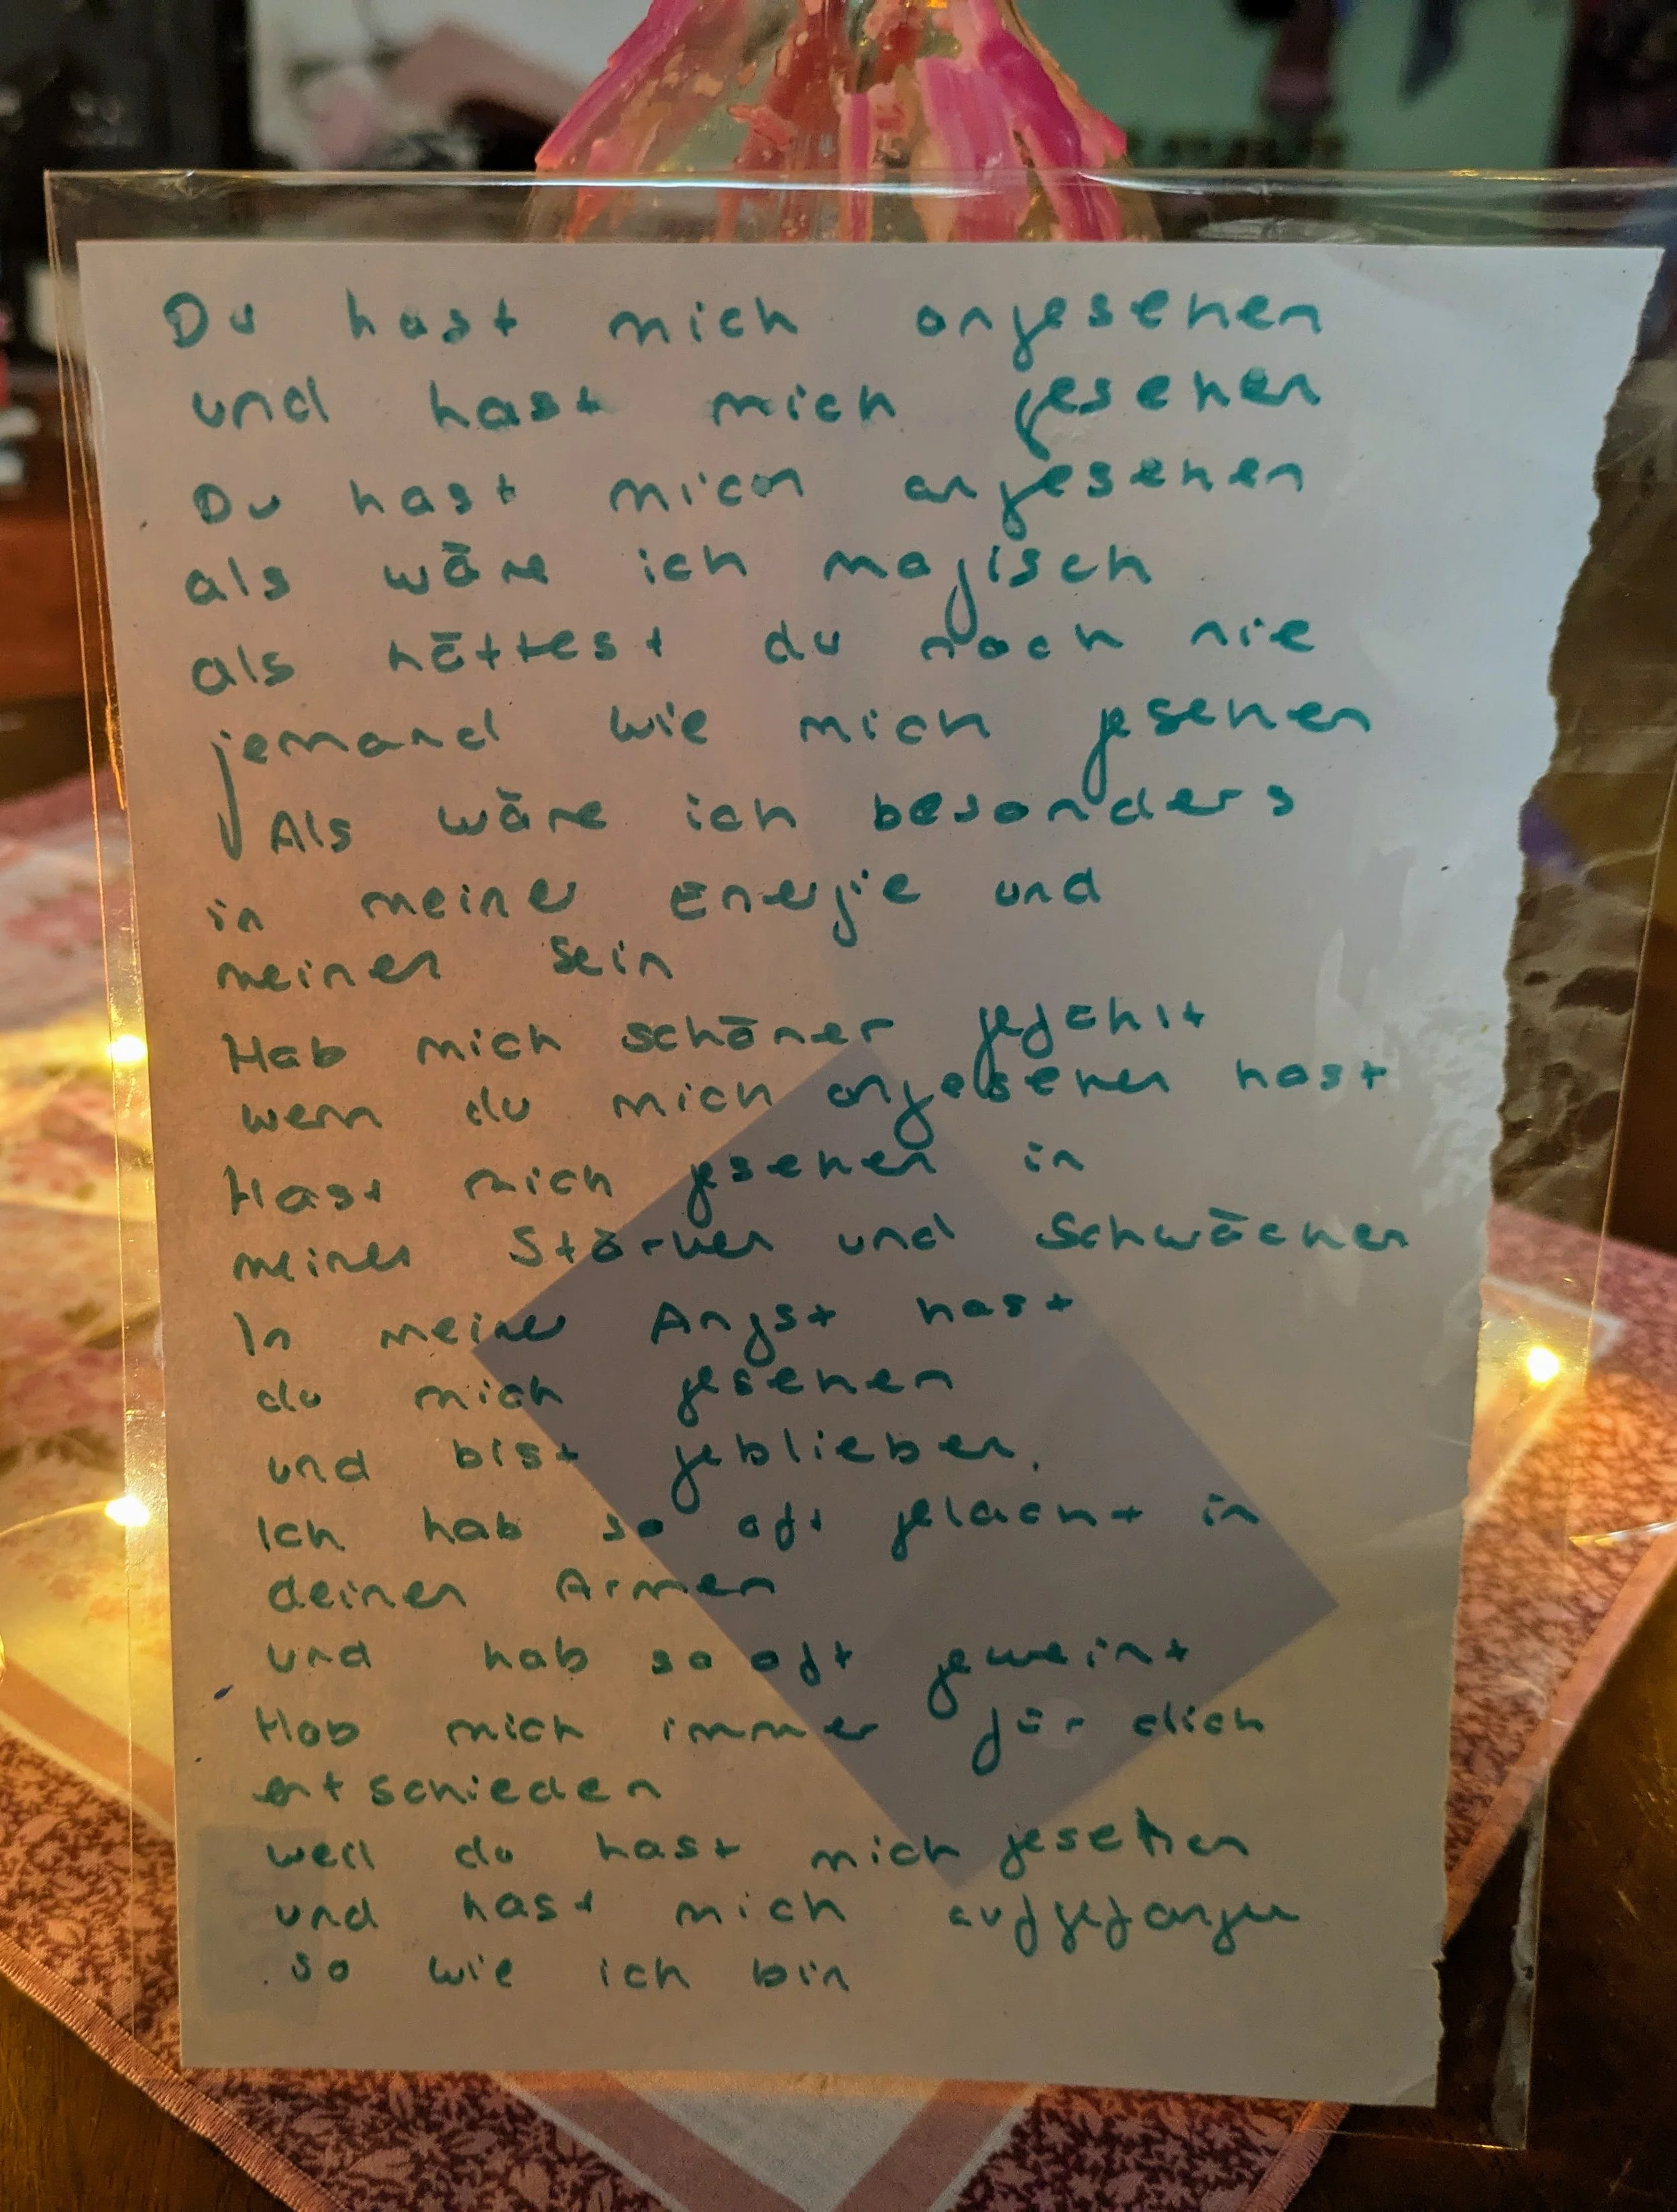 Du hast mich angesehen
und hast mich gesehen
Du hast mich angesehen
als wäre ich magisch
als hättest du noch nie
jemand wie mich gesehen
Als wäre ich besonders
in meiner Energie und
meinen Sein
Hab mich schöner gefühlt
wenn du mich angesehen hast
Hast mich gesehen in
meinen Stärken und Schwächen
In meiner Angst hast
du mich gesehen
und bist geblieben.
Ich hab so oft gelacht in
deinen Armen
und hab so oft geweint
Hab mich immer für dich
entschieden
weil du hast mich gesehen
und hast mich aufgefangen
so wie ich bin